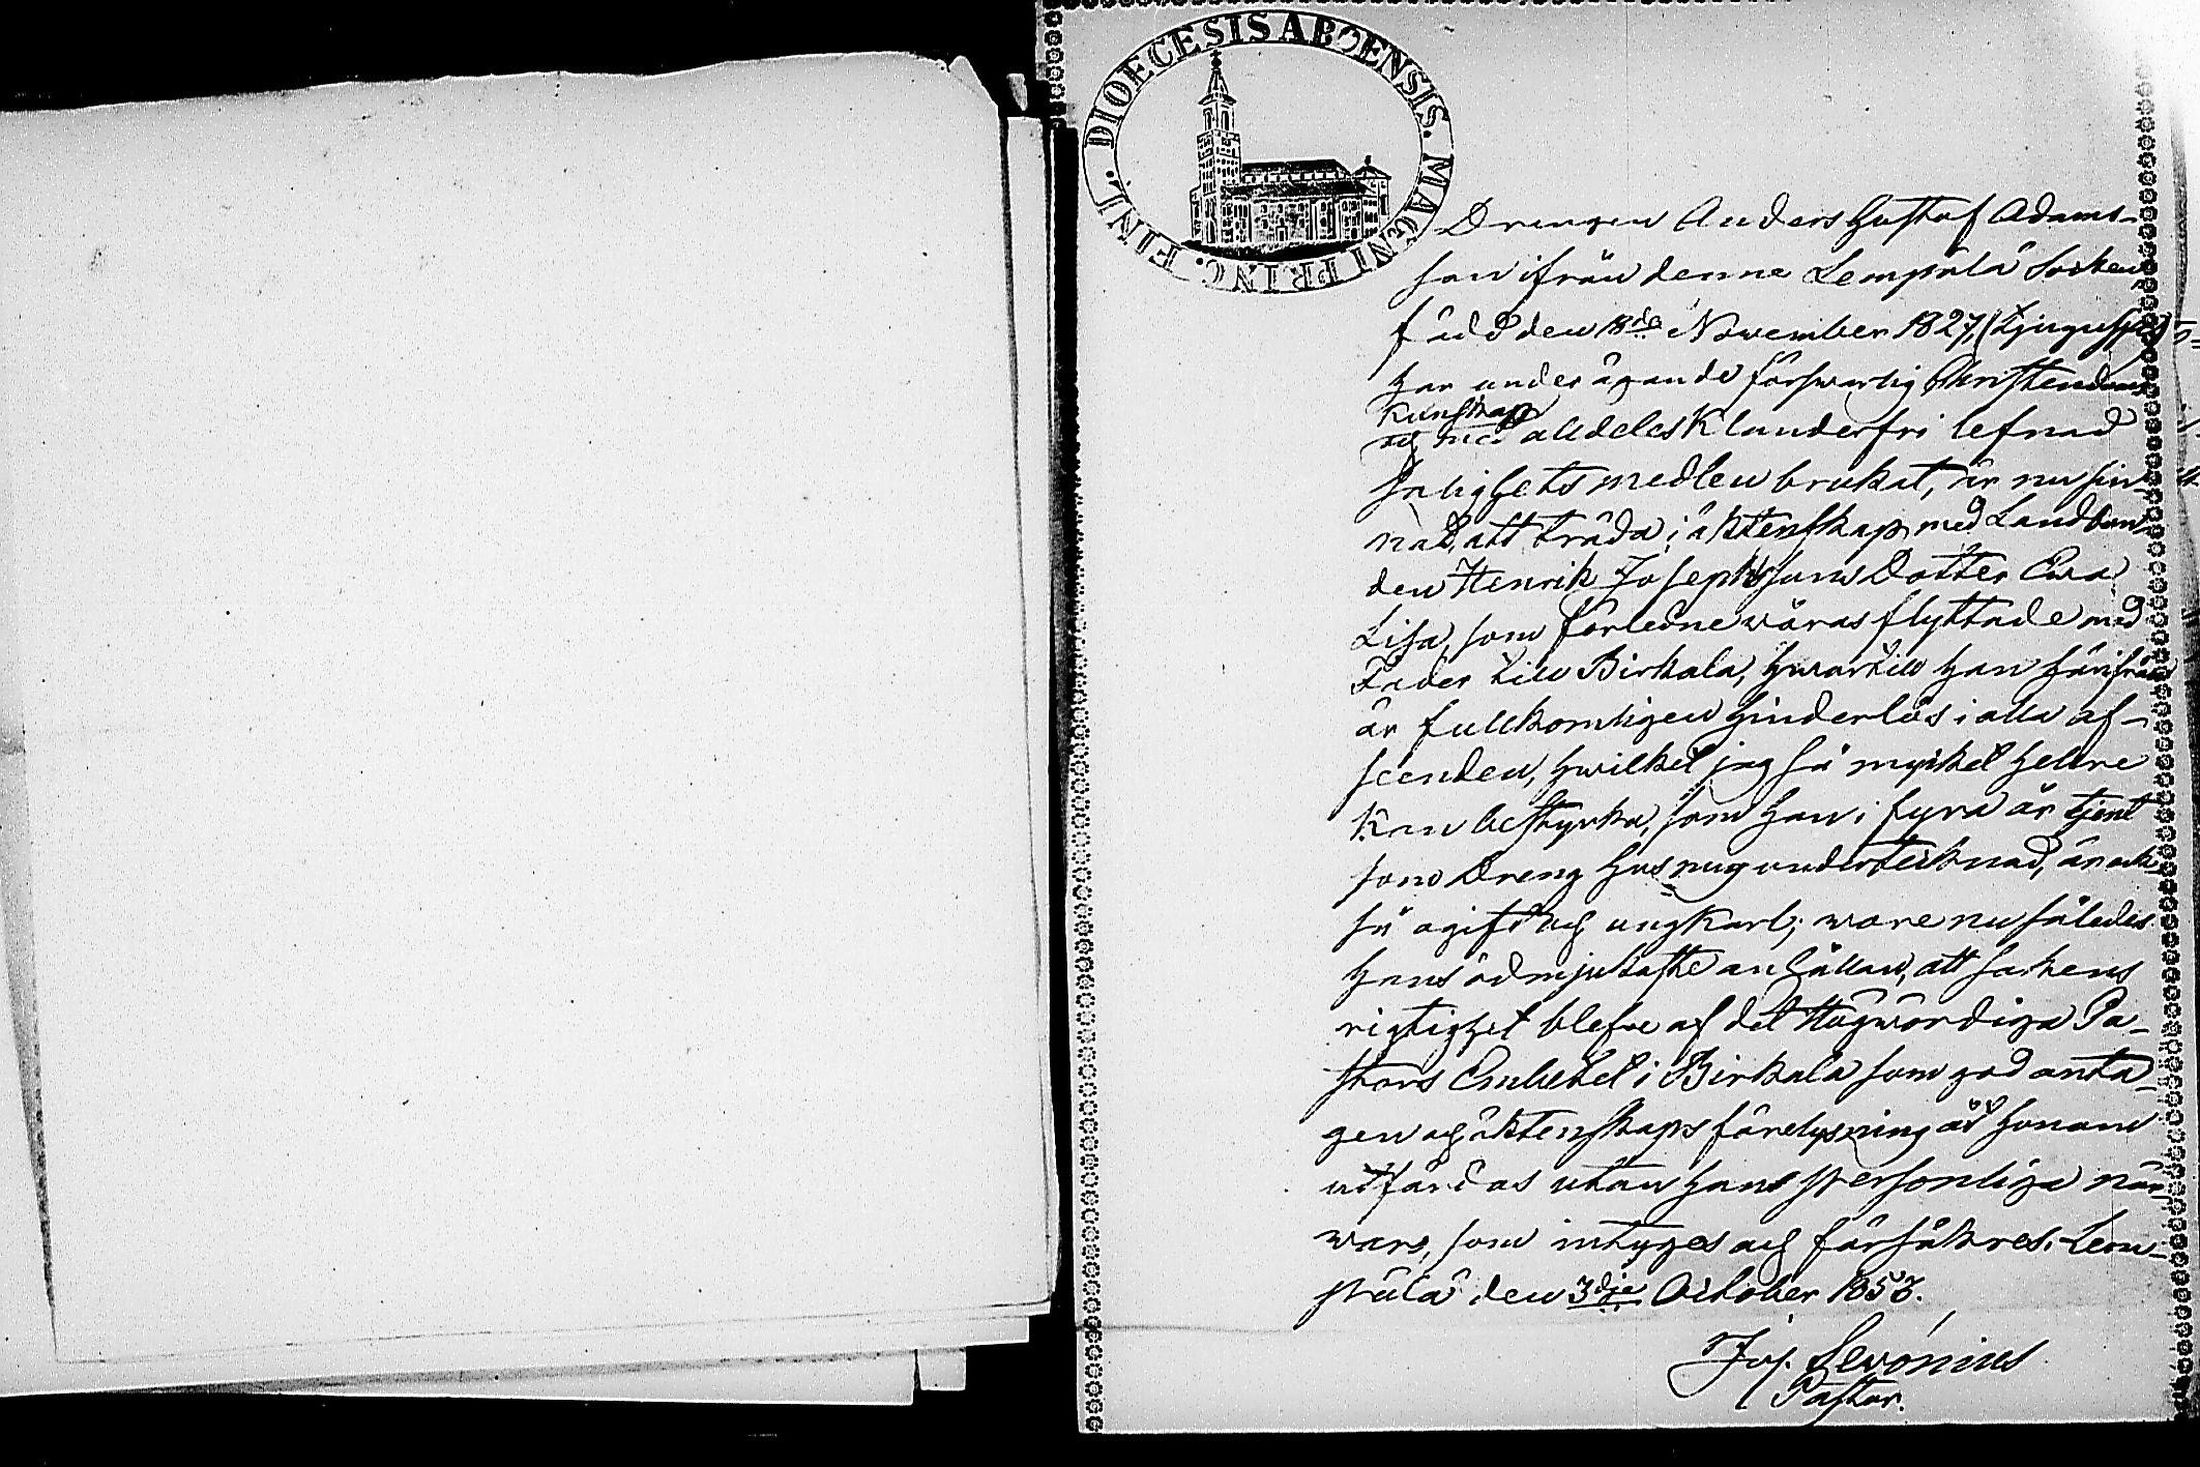 DIOECESIS ABOENSIS. MAGNI PRINC. FINL.
Drengen Anders Gustaf Adams-
son ifrån denne Lempälä Socken
född den 18de November 1827,
har under ägande förswarlig Christendoms
kunskap
och med alldeles klanderfri lefnad
salighets medlen brukat, är nu sin-
nad, att träda i äktenskap med Landbon-
den Henrik Josephssons Dotter Ewa
Lisa, som förledne wåras flyttade med
Fader till Birkala, hwartill han härifrån
är fullkomligen hinderlös i alla af-
seenden, hwilket jag så myckel hellre
kan bestyrka, som han i fyra år tjent
som Dreng hos mig undertecknad, är ock
så ogift och ungkarl; wore nu således
hans ödmjukaste anhållan, att sakens
rigtighet blefve af det Högwördiga Pa-
stors Embetet i Birkala som god anta-
gen och äktenskaps förelysning åt honom
utfärdas utan hans personliga när-
waro, som intyges och försäkres. Lem-
pälä den 3dje October
Jos. Levónius
Pastor.